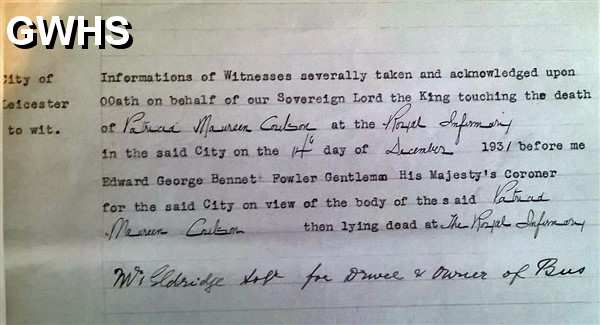 GWHS
City of Informations of Witnesses severally taken and acknowledged upon
Leicester OOath on behalf of our Sovereign Lord the King touching the death
to wit. of Patricia Maureen at the Royal Infirmary
in the said City on the 14th day of December 1931 before me
Edward George Bennett Fowler Gentleman His Majesty's Coroner
for the said City on view of the body of the said Patricia
Maureen then lying dead at The Royal Infirmary
Mr Eldridge Solr for Driver & Owner of Bus